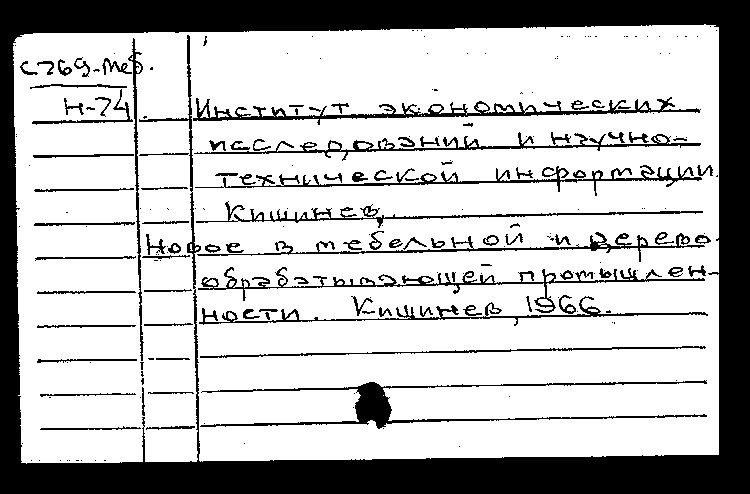 С769-меб.
Н-74
Институт экономических
исследований и научно-
технической информации.
Кишинев.
Новое в мебельной и дерево-
обрабатывающей промышлен-
ности. Кишинев, 1966.